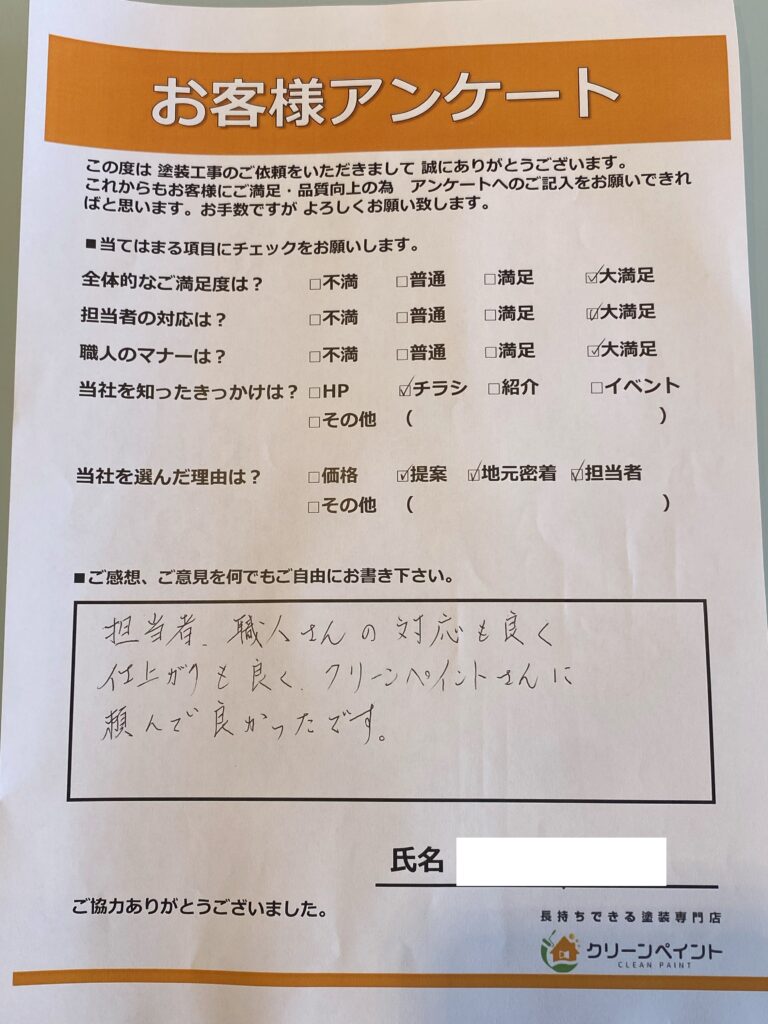 お客様アンケート
この度は 塗装工事のご依頼をいただきまして 誠にありがとうございます。
これからもお客様にご満足・品質向上の為　アンケートへのご記入をお願いできれ
ばと思います。お手数ですが よろしくお願い致します。
■当てはまる項目にチェックをお願いします。
全体的なご満足度は？ □不満 □普通 □満足 ☑大満足
担当者の対応は？ □不満 □普通 □満足 ☑大満足
職人のマナーは？ □不満 □普通 □満足 ☑大満足
当社を知ったきっかけは？ □HP ☑チラシ □紹介 □イベント
□その他 （ ）
当社を選んだ理由は？ □価格 ☑提案 ☑地元密着 ☑担当者
□その他 （ ）
■ご感想、ご意見を何でもご自由にお書き下さい。
担当者、職人さんの対応も良く
仕上がりも良く、クリーンペイントさんに
頼んで良かったです。
氏名
ご協力ありがとうございました。
長持ちできる塗装専門店
クリーンペイント
CLEAN PAINT